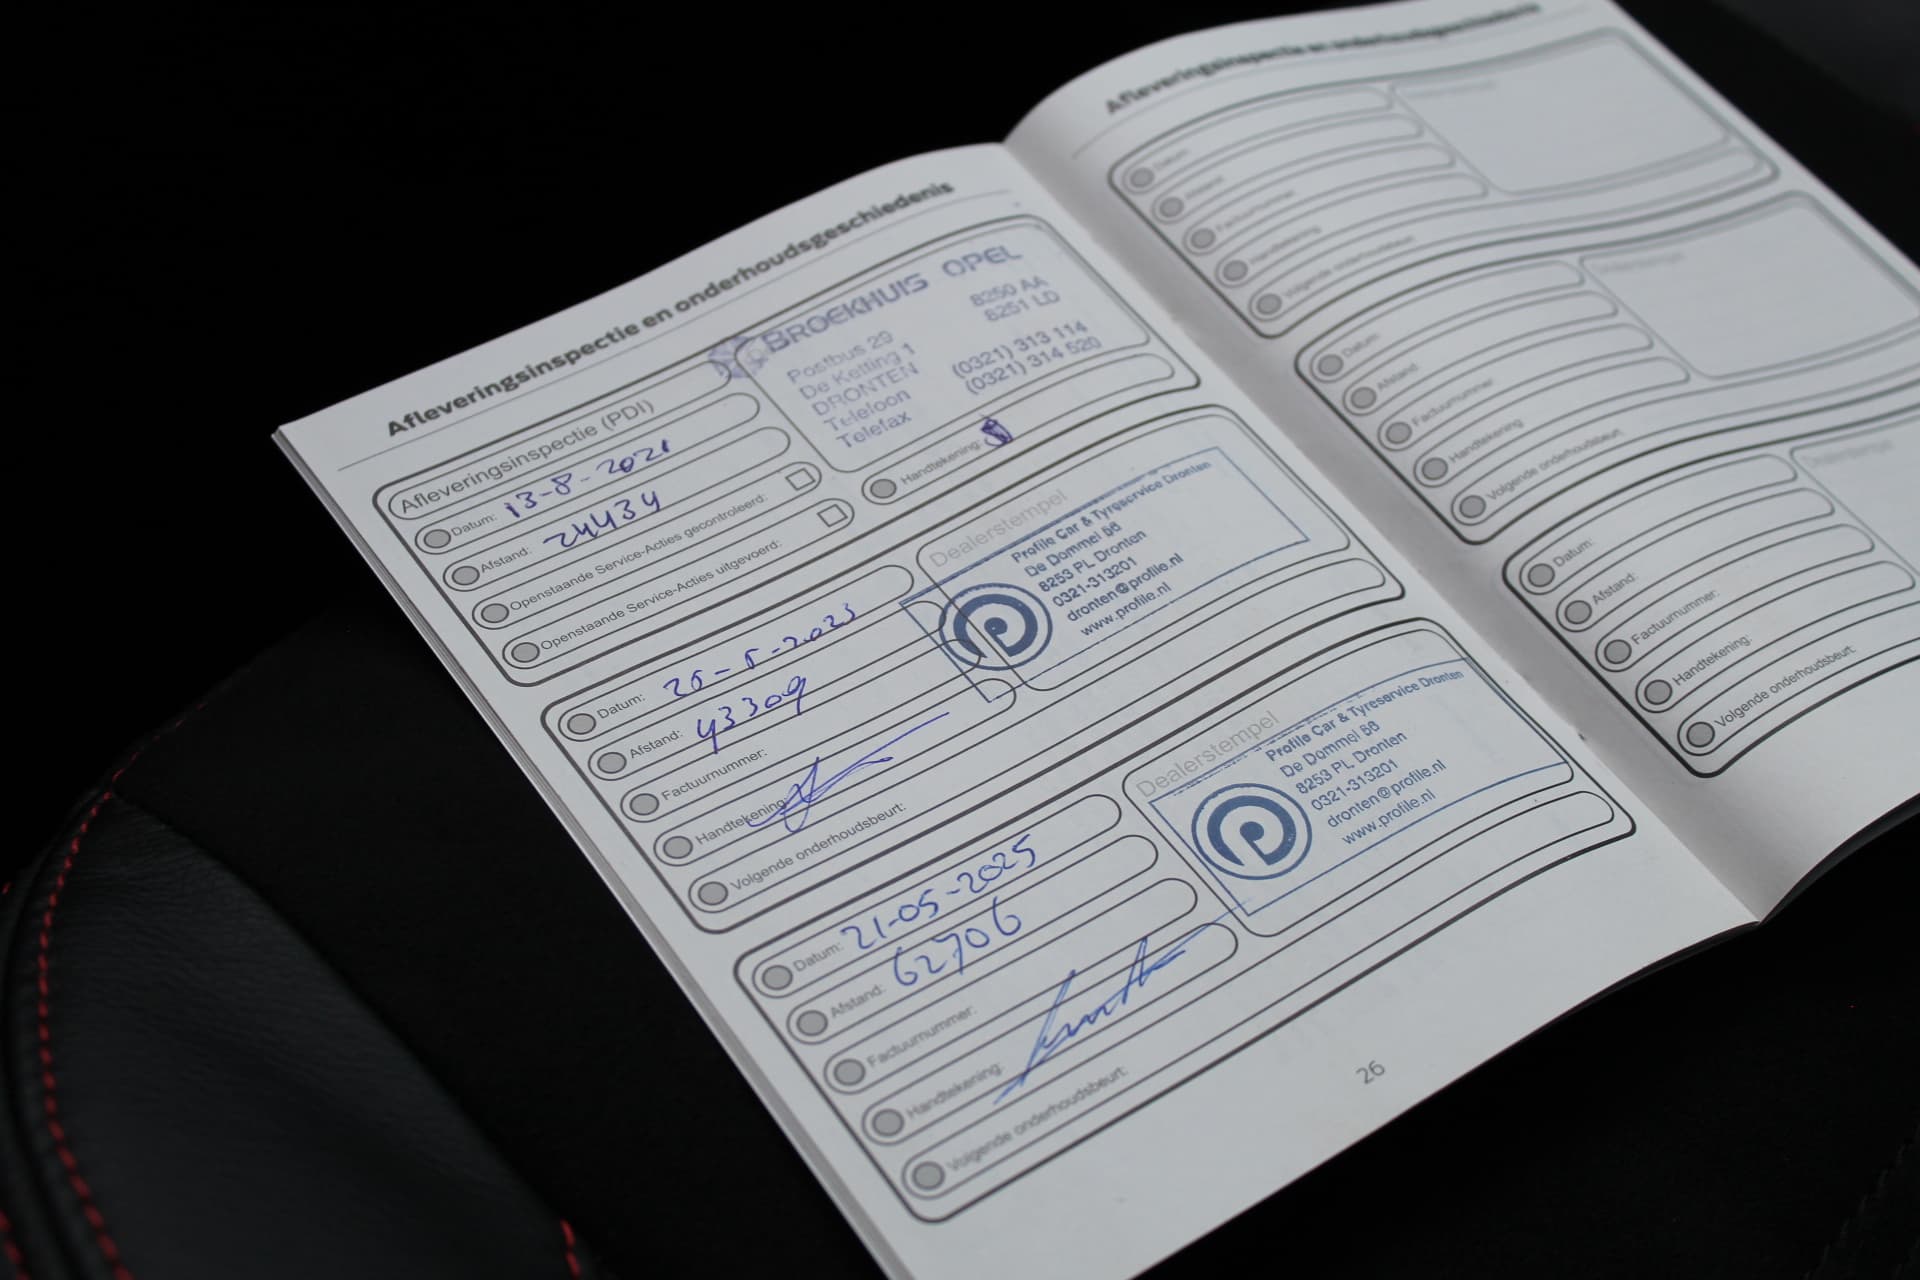 Afleveringsinspectie en onderhoudsgeschiedenis
Afleveringsinspectie (PDI)
Datum: 13-8-2021
Afstand: 24434
Openstaande Service-Acties gecontroleerd:
Openstaande Service-Acties uitgevoerd:
BROEKHUIS OPEL
Postbus 29 8250 AA
De Ketting 1 8251 LD
DRONTEN
Telefoon (0321) 313 114
Telefax (0321) 314 520
Handtekening:
Datum: 25-5-2023
Afstand: 43309
Factuurnummer:
Handtekening:
Volgende onderhoudsbeurt:
Dealerstempel
Profile Car & Tyreservice Dronten
De Dommel 56
8253 PL Dronten
0321-313201
dronten@profile.nl
www.profile.nl
Datum: 21-05-2025
Afstand: 62706
Factuurnummer:
Handtekening:
Volgende onderhoudsbeurt:
Dealerstempel
Profile Car & Tyreservice Dronten
De Dommel 56
8253 PL Dronten
0321-313201
dronten@profile.nl
www.profile.nl
26
Afleveringsinspectie en onderhoudsgeschiedenis
Datum:
Afstand:
Factuurnummer:
Handtekening:
Volgende onderhoudsbeurt:
Datum:
Afstand:
Factuurnummer:
Handtekening:
Volgende onderhoudsbeurt:
Datum:
Afstand:
Factuurnummer:
Handtekening:
Volgende onderhoudsbeurt:
Dealerstempel